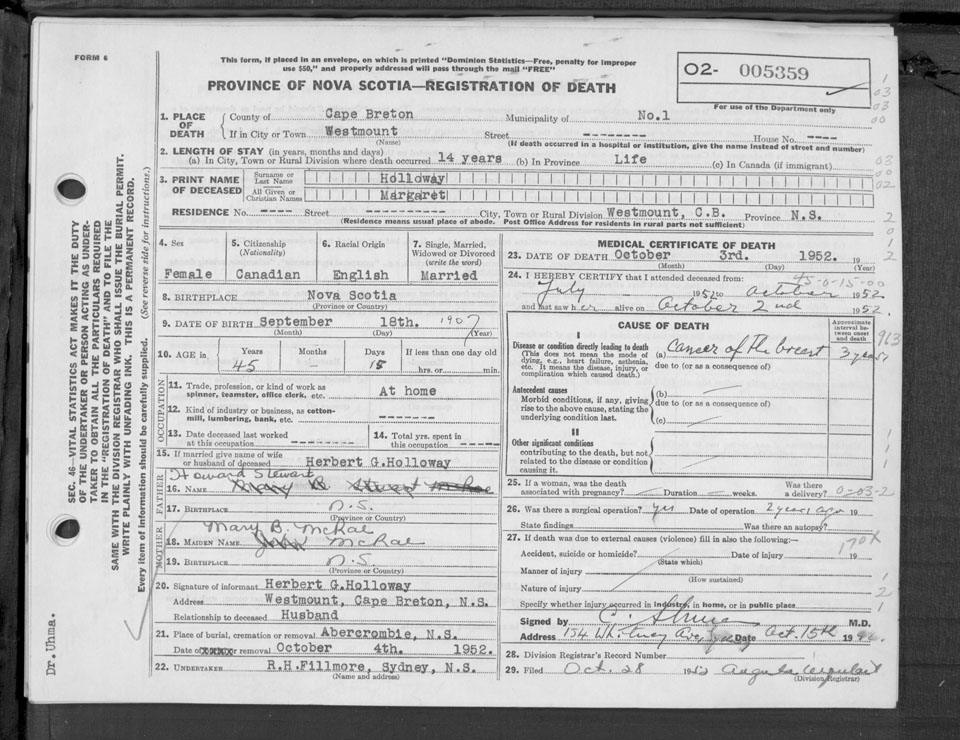 FORM 6
This form, if placed in an envelope, on which is printed "Dominion Statistics—Free, penalty for improper
use $50," and properly addressed will pass through the mail "FREE"
PROVINCE OF NOVA SCOTIA—REGISTRATION OF DEATH
02- 005359
For use of the Department only
1. PLACE OF DEATH
County of Cape Breton Municipality of No.1
If in City or Town Westmount Street -------- House No. ----
(Name) (If death occurred in a hospital or institution, give the name instead of street and number)
2. LENGTH OF STAY (in years, months and days)
(a) In City, Town or Rural Division where death occurred 14 years (b) In Province Life (c) In Canada (if immigrant)
3. PRINT NAME OF DECEASED
Surname or Last Name Holloway
All Given or Christian Names Margaret
RESIDENCE No. ---- Street ---------- City, Town or Rural Division Westmount, C.B. Province N.S.
(Residence means usual place of abode. Post Office Address for residents in rural parts not sufficient)
4. Sex Female
5. Citizenship (Nationality) Canadian
6. Racial Origin English
7. Single, Married, Widowed or Divorced (write the word) Married
8. BIRTHPLACE Nova Scotia
(Province or Country)
9. DATE OF BIRTH September 18th. 1907
(Month) (Day) (Year)
10. AGE in Years Months Days If less than one day old
45 — 15 hrs. or min.
OCCUPATION
11. Trade, profession, or kind of work as spinner, teamster, office clerk, etc. At home
12. Kind of industry or business, as cotton-mill, lumbering, bank, etc. -------
13. Date deceased last worked at this occupation ------
14. Total yrs. spent in this occupation ----
15. If married give name of wife or husband of deceased Herbert G.Holloway
FATHER
Howard Stewart
16. NAME
17. BIRTHPLACE N.S.
(Province or Country)
MOTHER
Mary B. McRae
18. MAIDEN NAME McRae
19. BIRTHPLACE N.S.
(Province or Country)
20. Signature of informant Herbert G.Holloway
Address Westmount, Cape Breton, N.S.
Relationship to deceased Husband
21. Place of burial, cremation or removal Abercrombie, N.S.
Date or removal October 4th. 1952.
22. UNDERTAKER R.H.Fillmore, Sydney, N.S.
(Name and address)
MEDICAL CERTIFICATE OF DEATH
23. DATE OF DEATH October 3rd. 1952. 19
(Month) (Day) (Year)
24. I HEREBY CERTIFY that I attended deceased from:
July 1952 to October 1952
and last saw her alive on October 2nd 1952.
CAUSE OF DEATH
Approximate interval between onset and death
I
Disease or condition directly leading to death (a) Cancer of the breast 3 years
(This does not mean the mode of dying, e.g., heart failure, asthenia, etc. It means the disease, injury, or complication which caused death.)
due to (or as a consequence of)
Antecedent causes (b)
Morbid conditions, if any, giving rise to the above cause, stating the underlying condition last.
due to (or as a consequence of)
(c)
II
Other significant conditions
contributing to the death, but not related to the disease or condition causing it.
25. If a woman, was the death associated with pregnancy? Duration weeks. Was there a delivery?
26. Was there a surgical operation? yes Date of operation 2 years ago 19
State findings Was there an autopsy?
27. If death was due to external causes (violence) fill in also the following:—
Accident, suicide or homicide? Date of injury 19
(State which)
Manner of injury
(How sustained)
Nature of injury
Specify whether injury occurred in industry, in home, or in public place
Signed by M.D.
Address 154 Whitney Ave, Date Oct. 15th 19
28. Division Registrar's Record Number
29. Filed Oct. 28 1952
(Division Registrar)
SEC. 46—VITAL STATISTICS ACT MAKES IT THE DUTY
OF THE UNDERTAKER OR PERSON ACTING AS UNDER-
TAKER TO OBTAIN ALL THE PARTICULARS REQUIRED
IN THE "REGISTRATION OF DEATH" AND TO FILE THE
SAME WITH THE DIVISION REGISTRAR WHO SHALL ISSUE THE BURIAL PERMIT.
WRITE PLAINLY WITH UNFADING INK. THIS IS A PERMANENT RECORD.
Every item of information should be carefully supplied. (See reverse side for instructions.)
Dr. Uhma.